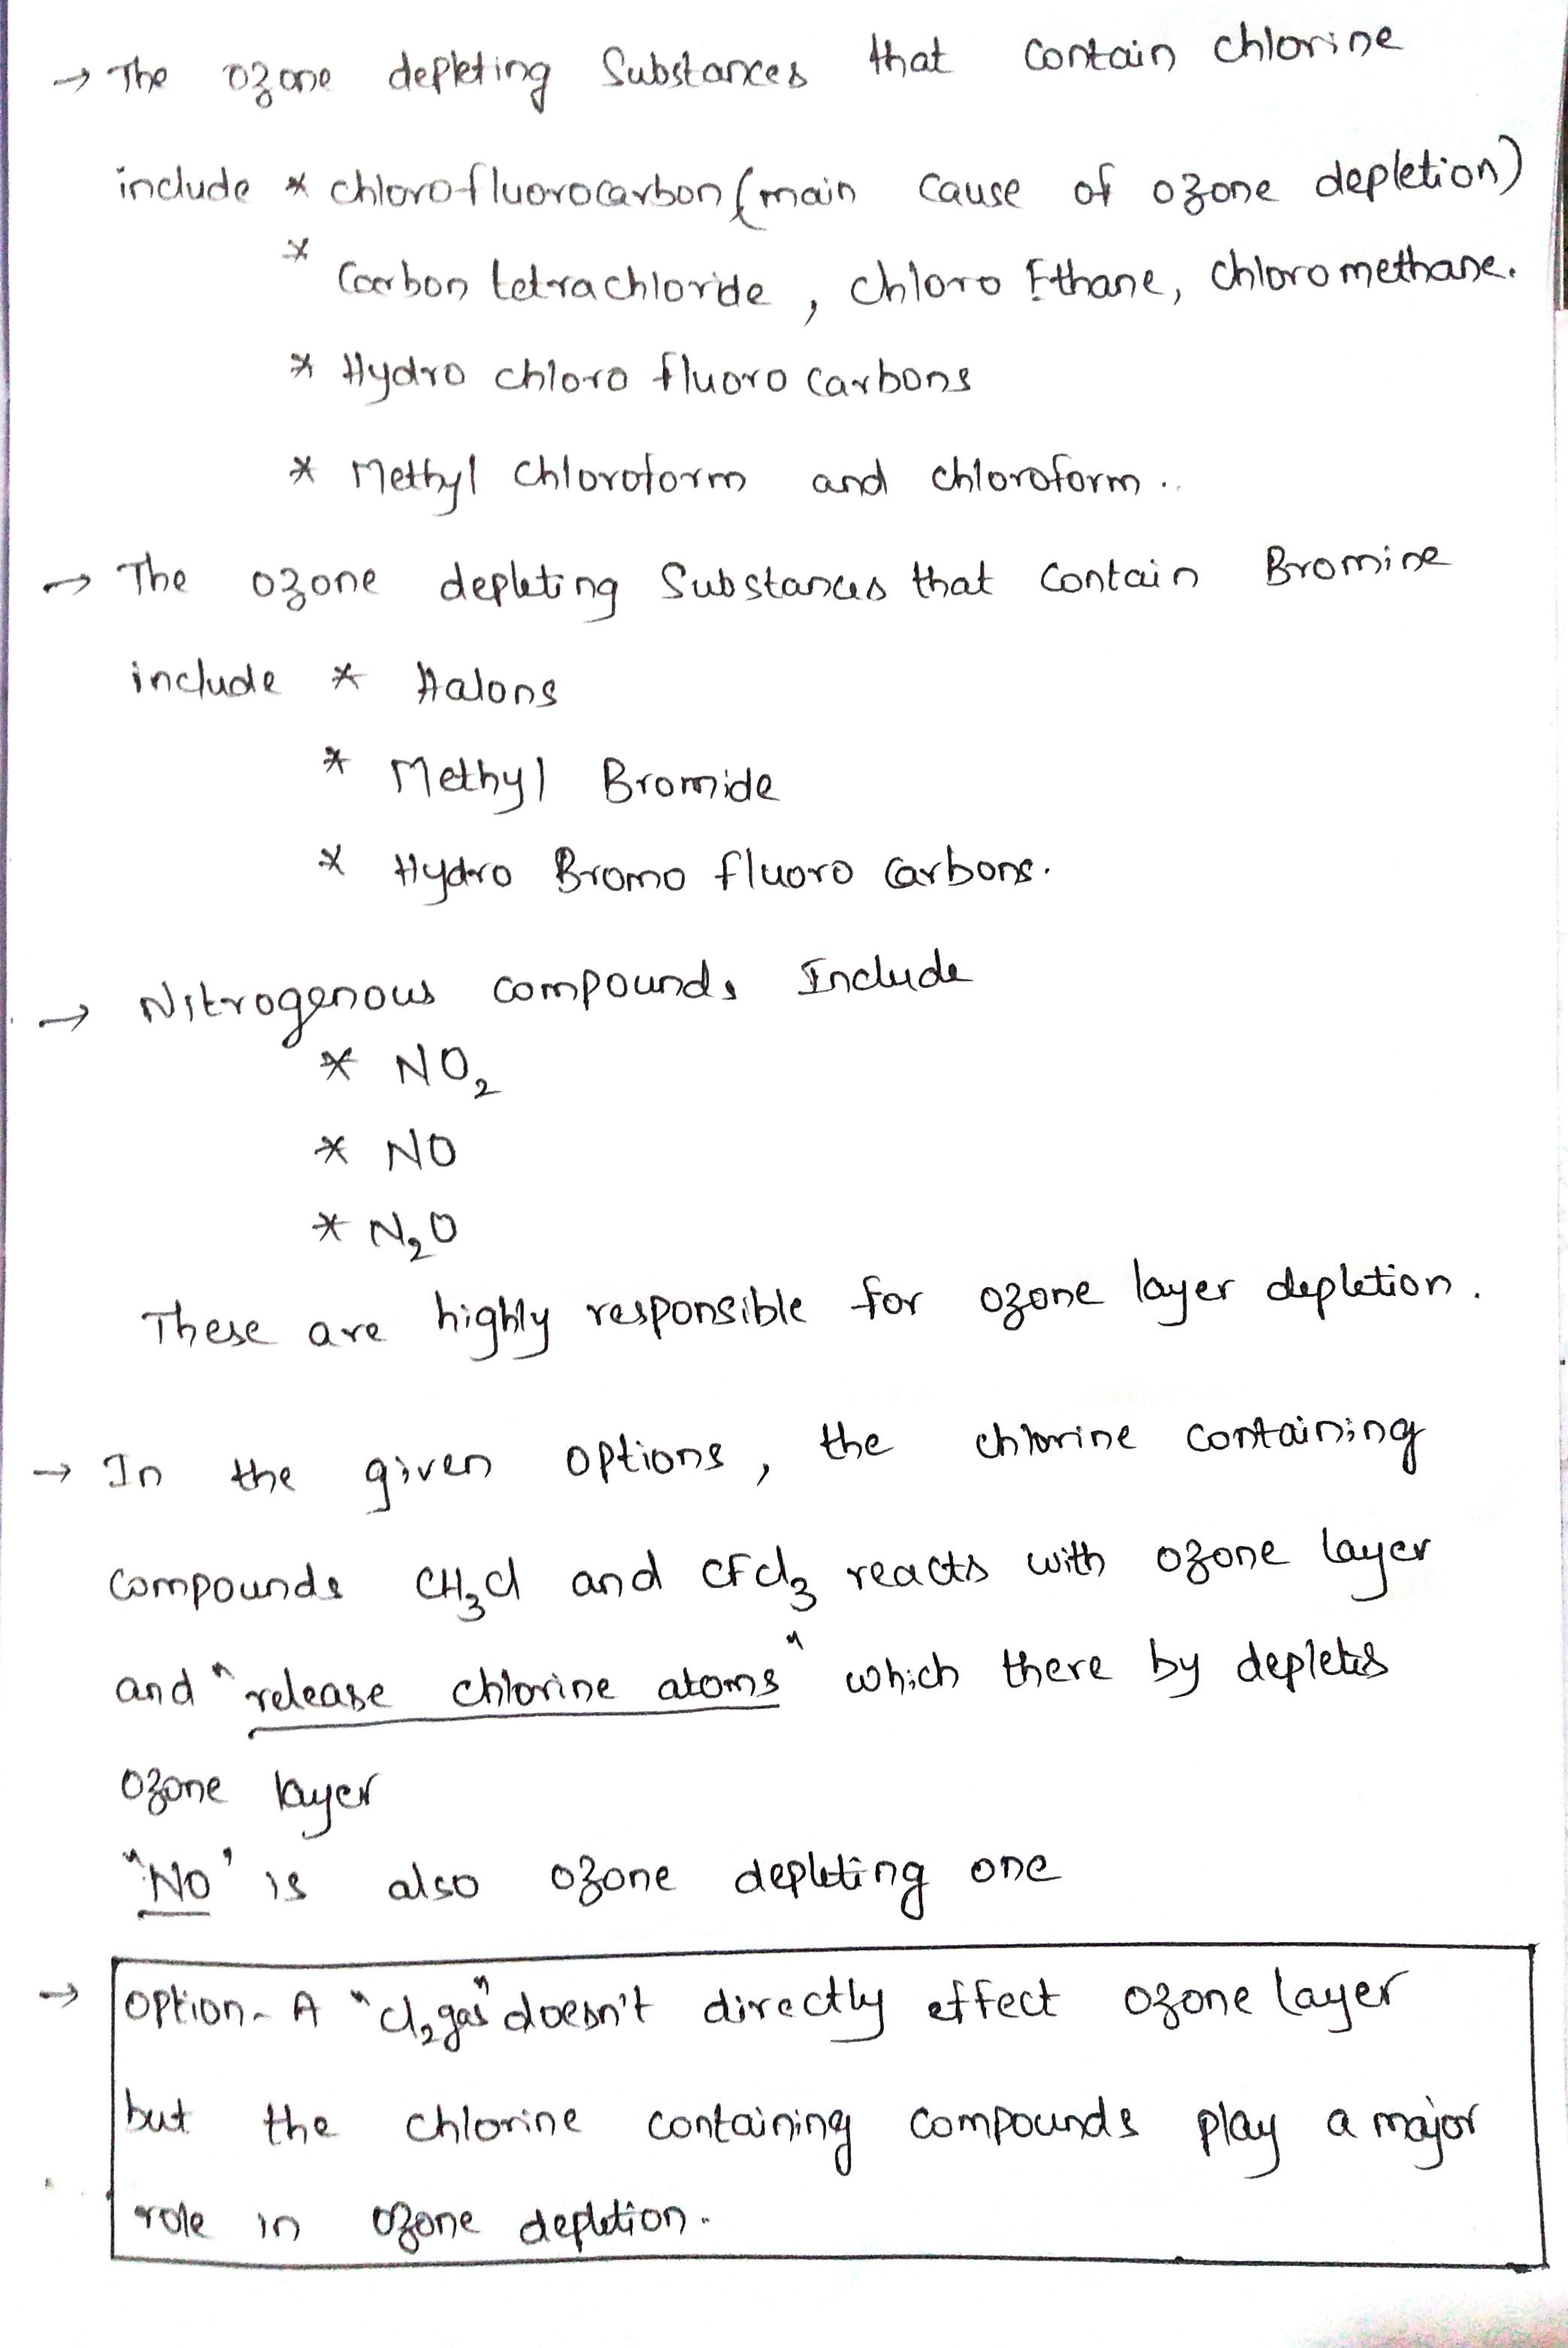 → The ozone depleting Substances that contain chlorine
include * chlorofluorocarbon (main cause of ozone depletion)
* Carbon tetrachloride , chloro Ethane, chloromethane.
* Hydro chloro fluoro carbons
* Methyl chloroform and chloroform ..
→ The ozone depleting Substances that contain Bromine
include * Halons
* Methyl Bromide
* Hydro Bromo fluoro carbons.
→ Nitrogenous compounds Include
* NO₂
* NO
* N₂O
These are highly responsible for ozone layer depletion .
→ In the given options , the chlorine containing
compounds CH₃Cl and CFCl₃ reacts with ozone layer
and "release chlorine atoms" which there by depletes
ozone layer
"NO' is also ozone depleting one
→ option - A "Cl₂ gas" doesn't directly effect ozone layer
but the chlorine containing compounds play a major
role in ozone depletion .